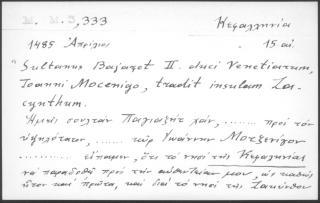 M. M. 3, 333 Κεφαλληνία
1485 Ἀπρίλιος 15 αἰ.
"Sultanus Bajazet II. duci Venetiarum,
Ioanni Mocenigo, tradit insulam Za-
cynthum.
Ἡμεῖς σουλτὰν Παγιαζὴτ χάν, ........ πρὸς τὸν
ὑψηλότατον, ...... κὺρ Ἰωάννην Μοτζενίγον
........... εἴπαμεν, ὅτι τὸ νησὶ τῆς Κεφαληνίας
νὰ παραδοθῇ πρὸς τὴν αὐθεντείαν μου, ὡς καθὼς
ἦτον καὶ πρῶτα, καὶ διὰ τὸ νησὶ τῆς Ζακύνθου